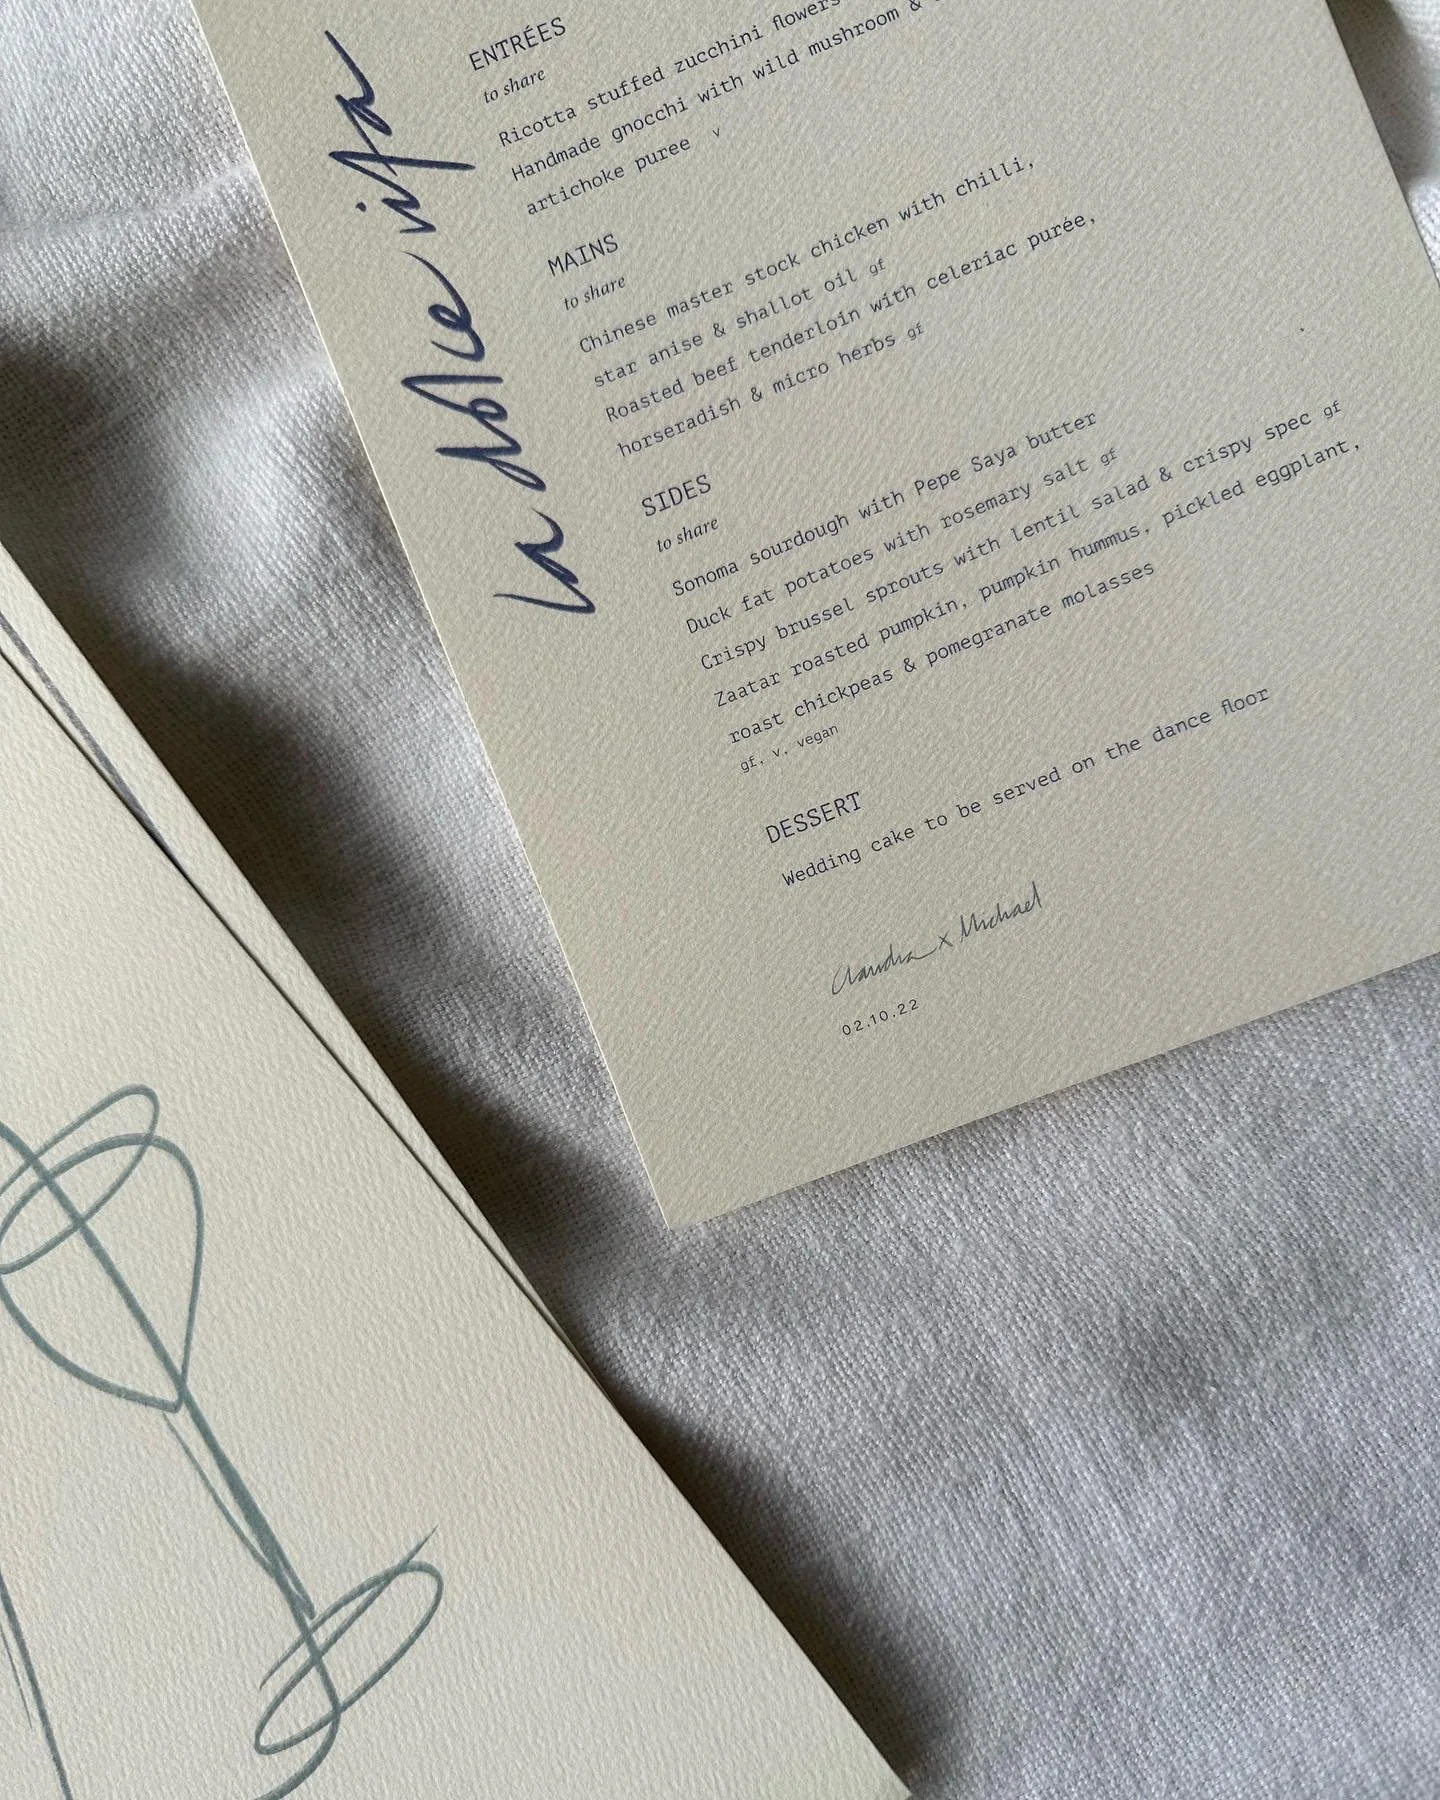 la dolce vita
ENTRÉES
to share
Ricotta stuffed zucchini flowers
Handmade gnocchi with wild mushroom &
artichoke puree v
MAINS
to share
Chinese master stock chicken with chilli,
star anise & shallot oil gf
Roasted beef tenderloin with celeriac purée,
horseradish & micro herbs gf
SIDES
to share
Sonoma sourdough with Pepe Saya butter
Duck fat potatoes with rosemary salt gf
Crispy brussel sprouts with lentil salad & crispy spec gf
Zaatar roasted pumpkin, pumpkin hummus, pickled eggplant,
roast chickpeas & pomegranate molasses
gf, v, vegan
DESSERT
Wedding cake to be served on the dance floor
Claudia x Michael
02.10.22